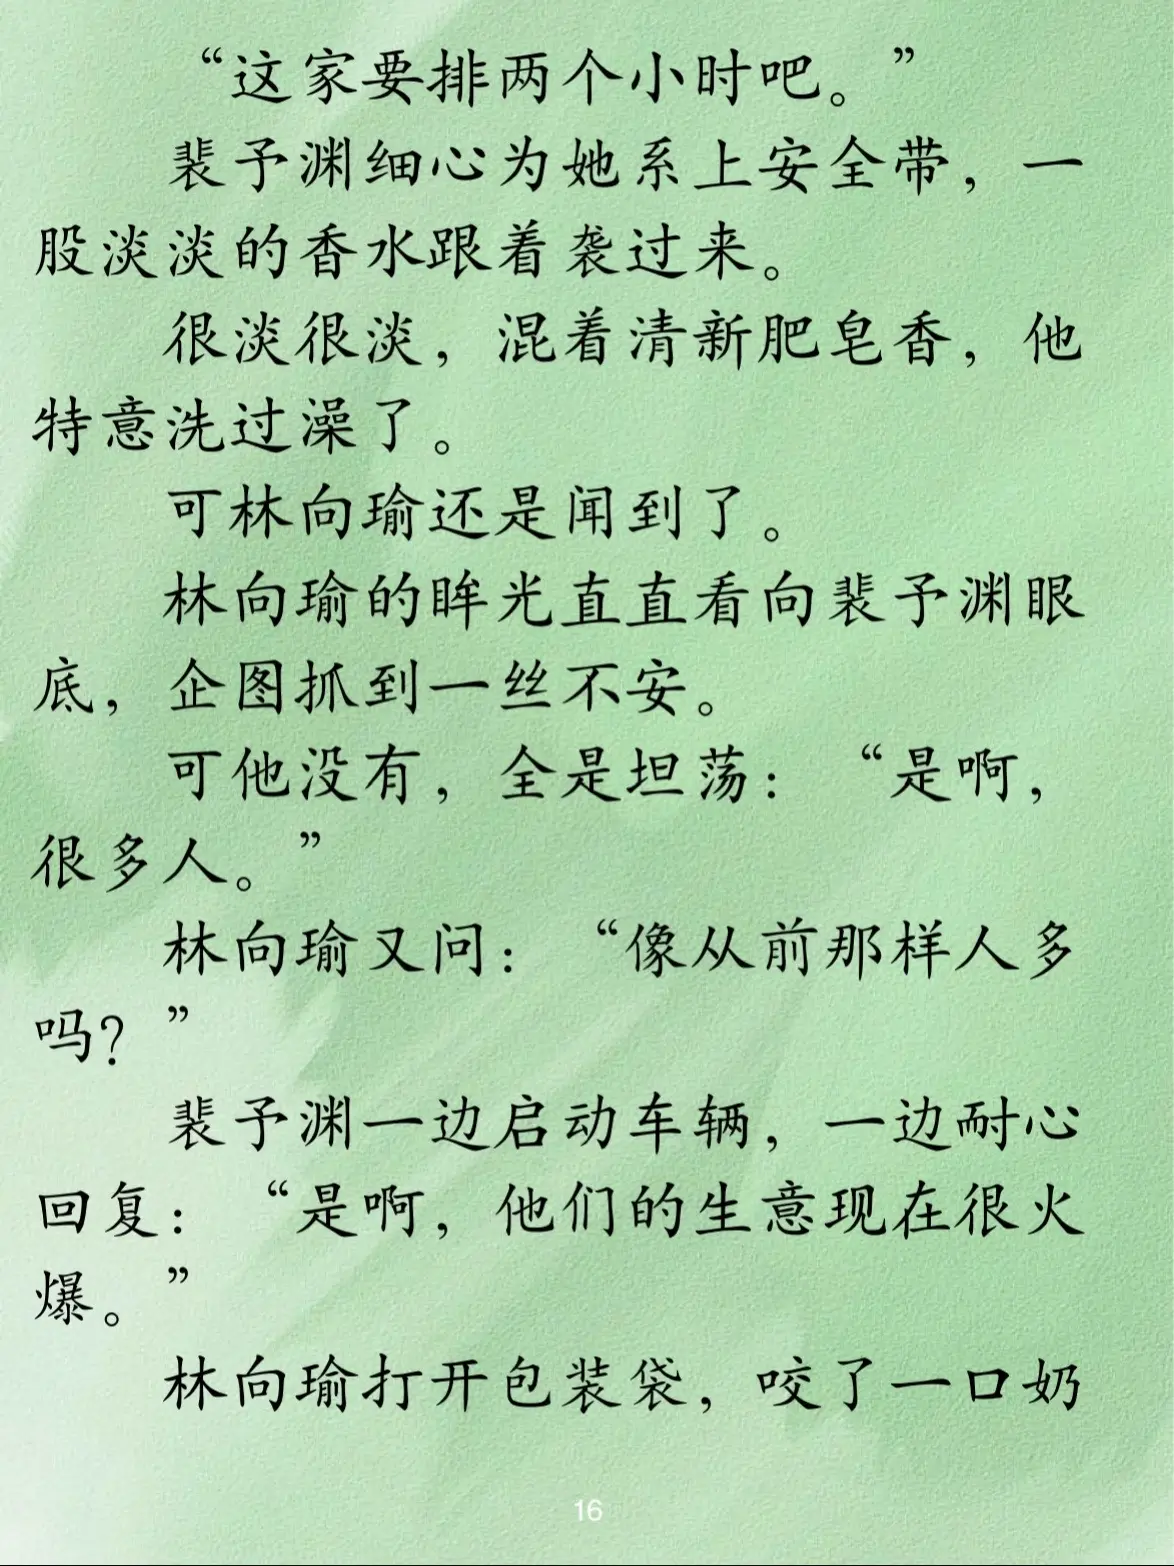 “这家要排两个小时吧。”
裴予渊细心为她系上安全带，一
股淡淡的香水跟着袭过来。
很淡很淡，混着清新肥皂香，他
特意洗过澡了。
可林向瑜还是闻到了。
林向瑜的眸光直直看向裴予渊眼
底，企图抓到一丝不安。
可他没有，全是坦荡：“是啊，
很多人。”
林向瑜又问：“像从前那样人多
吗？”
裴予渊一边启动车辆，一边耐心
回复：“是啊，他们的生意现在很火
爆。”
林向瑜打开包装袋，咬了一口奶
16